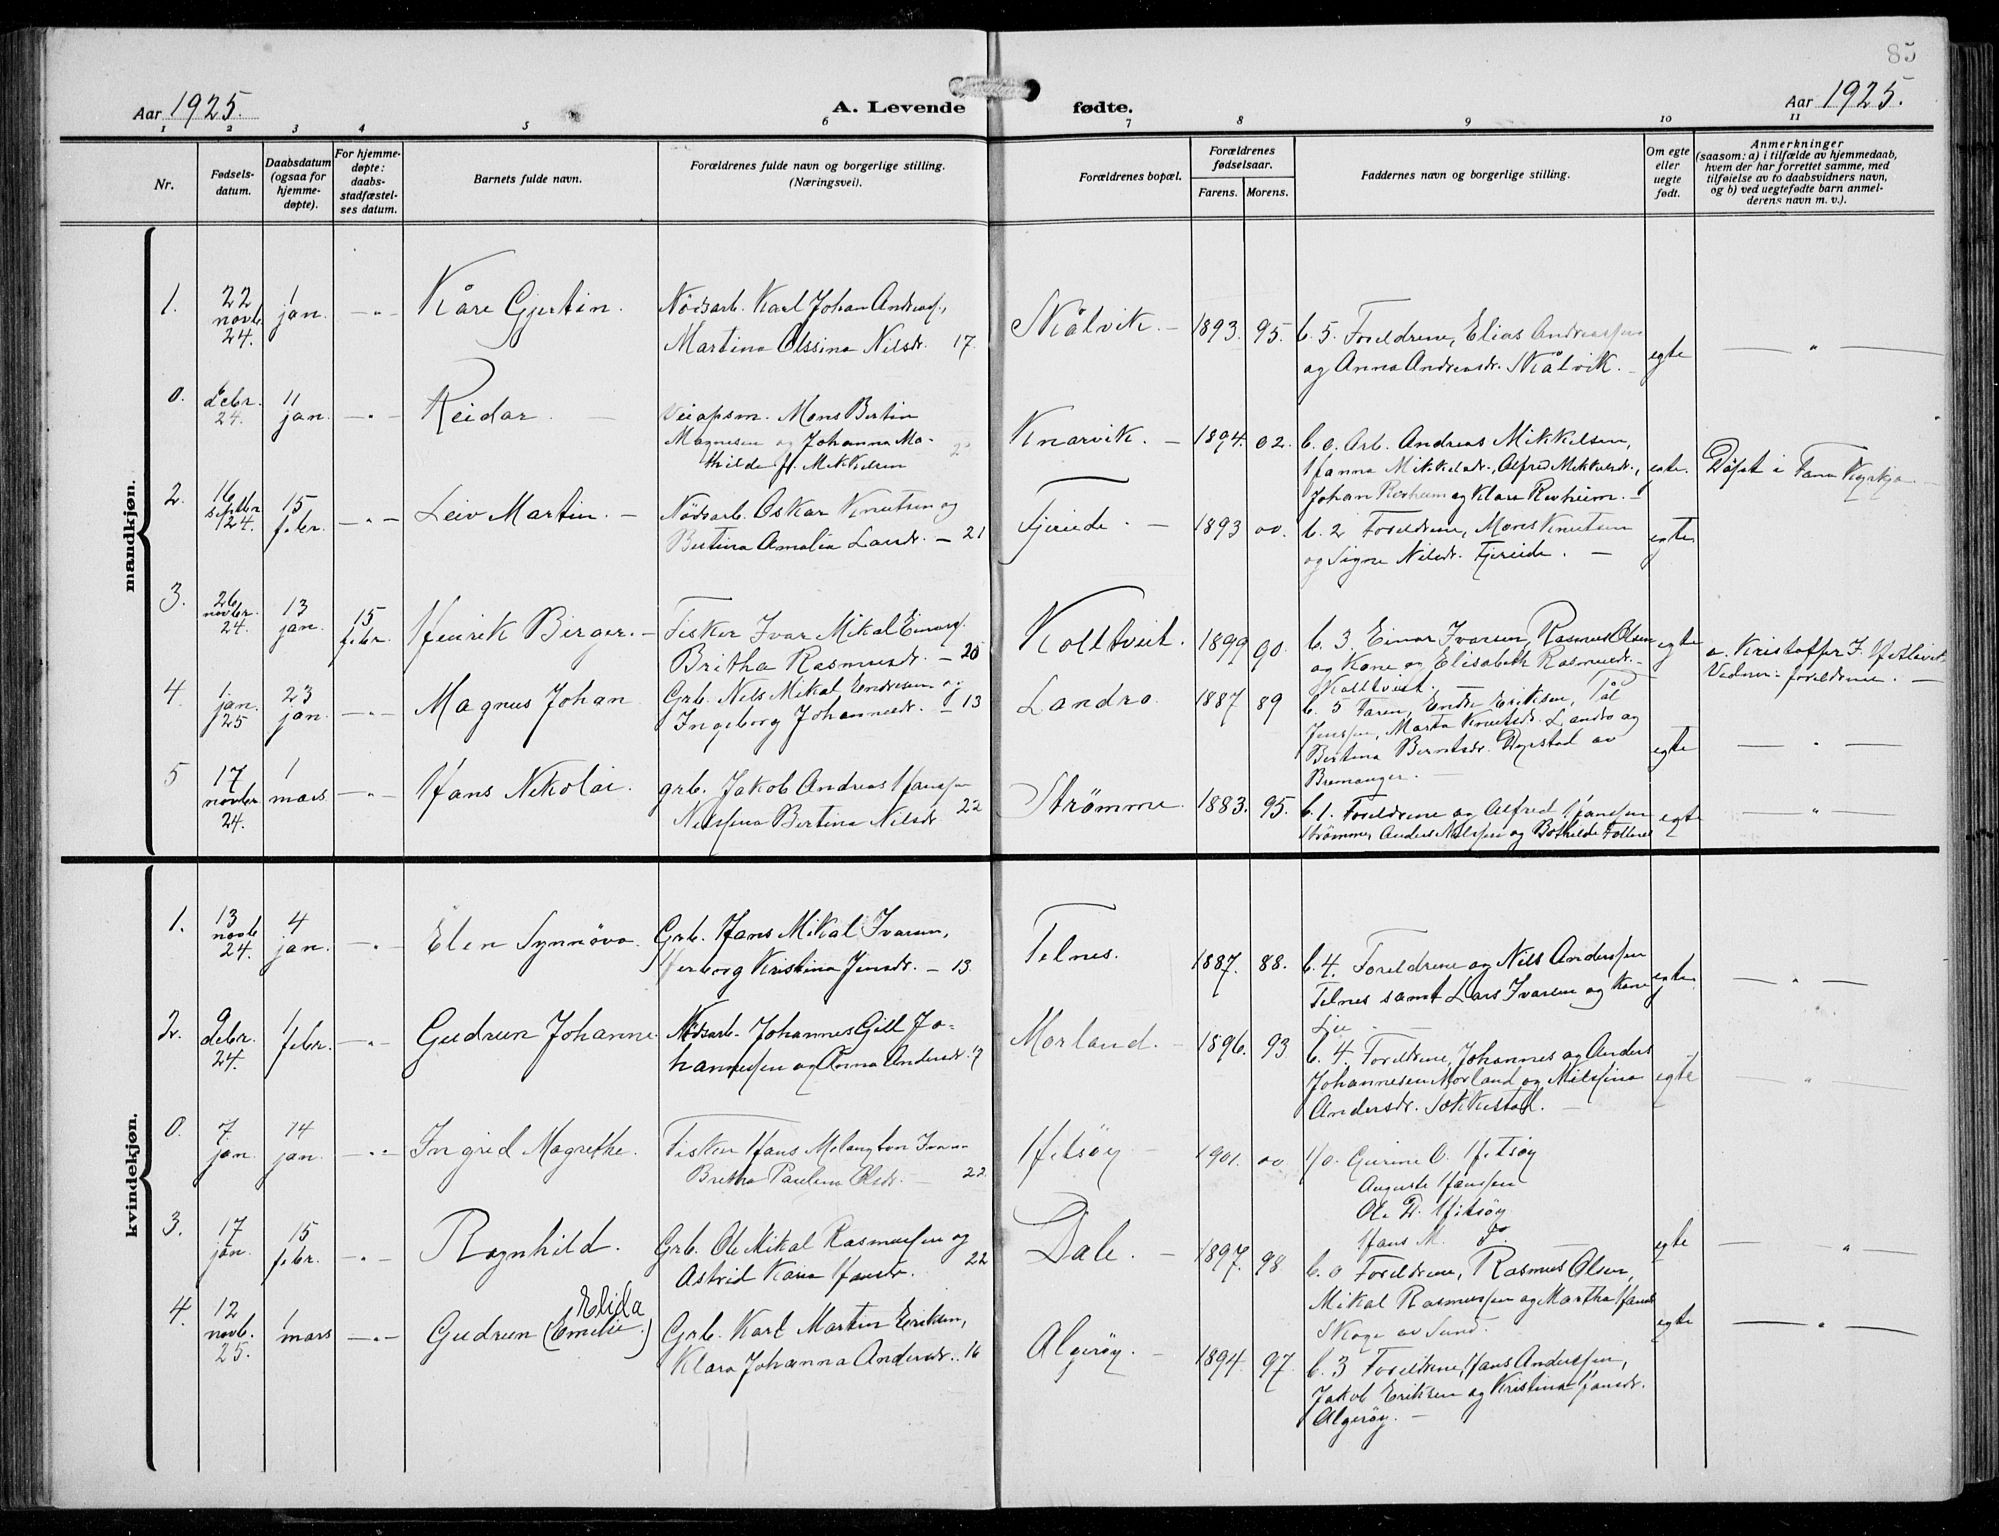 85
Aar 1925.
A. Levende fødte.
Aar 1925.
1 2 3 4 5 6 7 8 9 10 11
Nr.
Fødsels-
datum.
Daabsdatum
(ogsaa for
hjemme-
døpte).
For hjemme-
døpte:
daabs-
stadfæstel-
ses datum.
Barnets fulde navn.
Forældrenes fulde navn og borgerlige stilling.
(Næringsvei).
Forældrenes bopæl.
Forældrenes
fødselsaar.
Farens. Morens.
Faddernes navn og borgerlige stilling.
Om egte
eller
uegte
født.
Anmerkninger
(saasom: a) i tilfælde av hjemmedaab,
hvem der har forrettet samme, med
tilføielse av to daabsvidners navn,
og b) ved uegtefødte barn anmel-
derens navn m. v.).
mandkjøn.
1.
22
novb.
24.
1
jan.
Kåre Gjertin.
Nödsarb. Karl Johan Andreass.,
Martina Olssina Nilsdr. 17.
Skålvik.
1893. 95.
b. 5. Foreldrene, Elias Andreassen
og Anna Andreasdr. Skålvik.
egte
0.
debr.
24.
11
jan.
Reidar.
Mons Bertin
Magnesen og Johanna Ma-
thilde f. Mikkelsen
Knarvik.
1894. 02.
b. 0. Arb. Andreas Mikkelsen,
Hanna Mikkelsdr., Alfred Mikkelsdr.,
Johan Revheim og Klara Revheim.
egte.
Döpt i Fana Kyrkja
2.
16
septbr
124.
15
febr.
Leiv Martin.
Nödsarb. Oskar Knutsen og
Bertina Amalia Larsdr. 21
Fjereide.
1893 00.
b. 2 Foreldrene, Mons Knutsen
og Signe Nilsdr. Fjereide.
egte
3.
26
novbr.
24.
13
jan.
15
febr.
Henrik Birger.
Fisker Ivar Mikal Einars.
Britha Rasmusdr. 20
Kolltveit.
1899 90.
b. 3 Einar Ivarsen, Rasmus Olsen
og Kone og Elisabeth Rasmusdr.
Kolltveit.
egte
a. Kristoffer I.
Vidner: foreldrene.
4.
1
jan.
25
23
jan.
Magnus Johan
Grb. Nils Mikal Endresen og
Ingeborg Johannesdr. 13
Landro.
1887 89
b. 5 Faren, Endre Eriksen, Pål
Jenssen, Marta Knutsdr. Landro og
Bertina Berntsdr. Dyrstad av
Bremanger.
egte
5
17
novbr.
24.
1
mars
Hans Nikolai.
grb. Jakob Andreas Hanssen
Nilssina Bertina Nilsdr 22
Strömme.
1883. 95.
b. 1. Foreldrene og Alfred Hanssen
Strömme, Anders Nilssen og Bothilde Follenes
egte
kvindekjøn.
1.
13
novb
24.
4
jan.
Elen Synnöva.
Grb. Hans Mikal Ivarsen,
Herborg Kristina Jensdr. 13.
Telnes.
1887. 88.
b. 4. Foreldrene og Nils Anderssen
Telnes samt Lars Ivarsen og Kone
Lie
egte
2.
9
debr.
24.
1
febr.
Gudrun Johanne
Nödsarb. Johannes Gill Jo-
hannessen og Anna Andersdr.
Morland.
1896. 93.
b. 4. Foreldrene, Johannes og Anders
Johannesen Morland og Nilssina
Andersdr. Sekkestad.
egte
0.
7.
jan.
14
jan.
Ingrid Magrethe.
Fisker Hans Melangton
Bretha Paulina Olsdr. 22.
Hitsöy
1901. 00.
Gurine O. Hitsöy
Auguste Hanssen
Ole D. Hitsöy
Hans M. Do.
3.
17
jan.
15
febr.
Ragnhild.
Grb. Ole Mikal Rasmussen og
Astrid Karia Hansdr. 22
Dale.
1897. 98
b. 0 Foreldrene, Rasmus Olsen,
Mikal Rasmussen og Martha Hansdr
Skoge av Sund.
egte
4.
12
novb.
25.
1
mars
Elida
Gudrun (Emelie.)
Grb. Karl Martin Eriksen,
Klara Johanna Andersdr. 16
Algeröy.
1894. 97.
b. 3 Foreldrene, Hans Anderssen,
Jakob Eriksen og Kristina Hansdr.
Algeröy.
egte